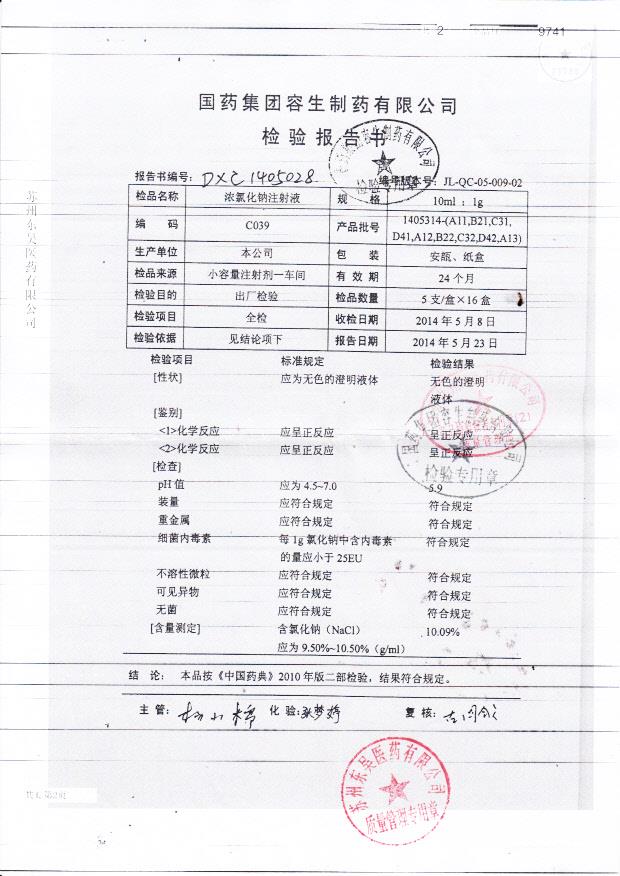 2 9741
国药集团容生制药有限公司
检验报告书
报告书编号: DXC1405028 版本号: JL-QC-05-009-02
检品名称 浓氯化钠注射液 规 格 10ml : 1g
编 码 C039 产品批号 1405314-(A11,B21,C31,
D41,A12,B22,C32,D42,A13)
生产单位 本公司 包 装 安瓿、纸盒
检品来源 小容量注射剂一车间 有 效 期 24 个月
检验目的 出厂检验 检品数量 5 支/盒×16 盒
检验项目 全检 收检日期 2014 年 5 月 8 日
检验依据 见结论项下 报告日期 2014 年 5 月 23 日
检验项目 标准规定 检验结果
[性状] 应为无色的澄明液体 无色的澄明
液体
[鉴别]
<1>化学反应 应呈正反应 呈正反应
<2>化学反应 应呈正反应 呈正反应
[检查]
pH 值 应为 4.5~7.0 5.9
装量 应符合规定 符合规定
重金属 应符合规定 符合规定
细菌内毒素 每 1g 氯化钠中含内毒素 符合规定
的量应小于 25EU
不溶性微粒 应符合规定 符合规定
可见异物 应符合规定 符合规定
无菌 应符合规定 符合规定
[含量测定] 含氯化钠（NaCl） 10.09%
应为 9.50%~10.50%（g/ml）
结 论: 本品按《中国药典》2010 年版二部检验，结果符合规定。
主 管: 化 验: 张梦婷 复 核:
苏州东吴医药有限公司
质量管理专用章
检验专用章
检验专用章
苏州东吴医药有限公司